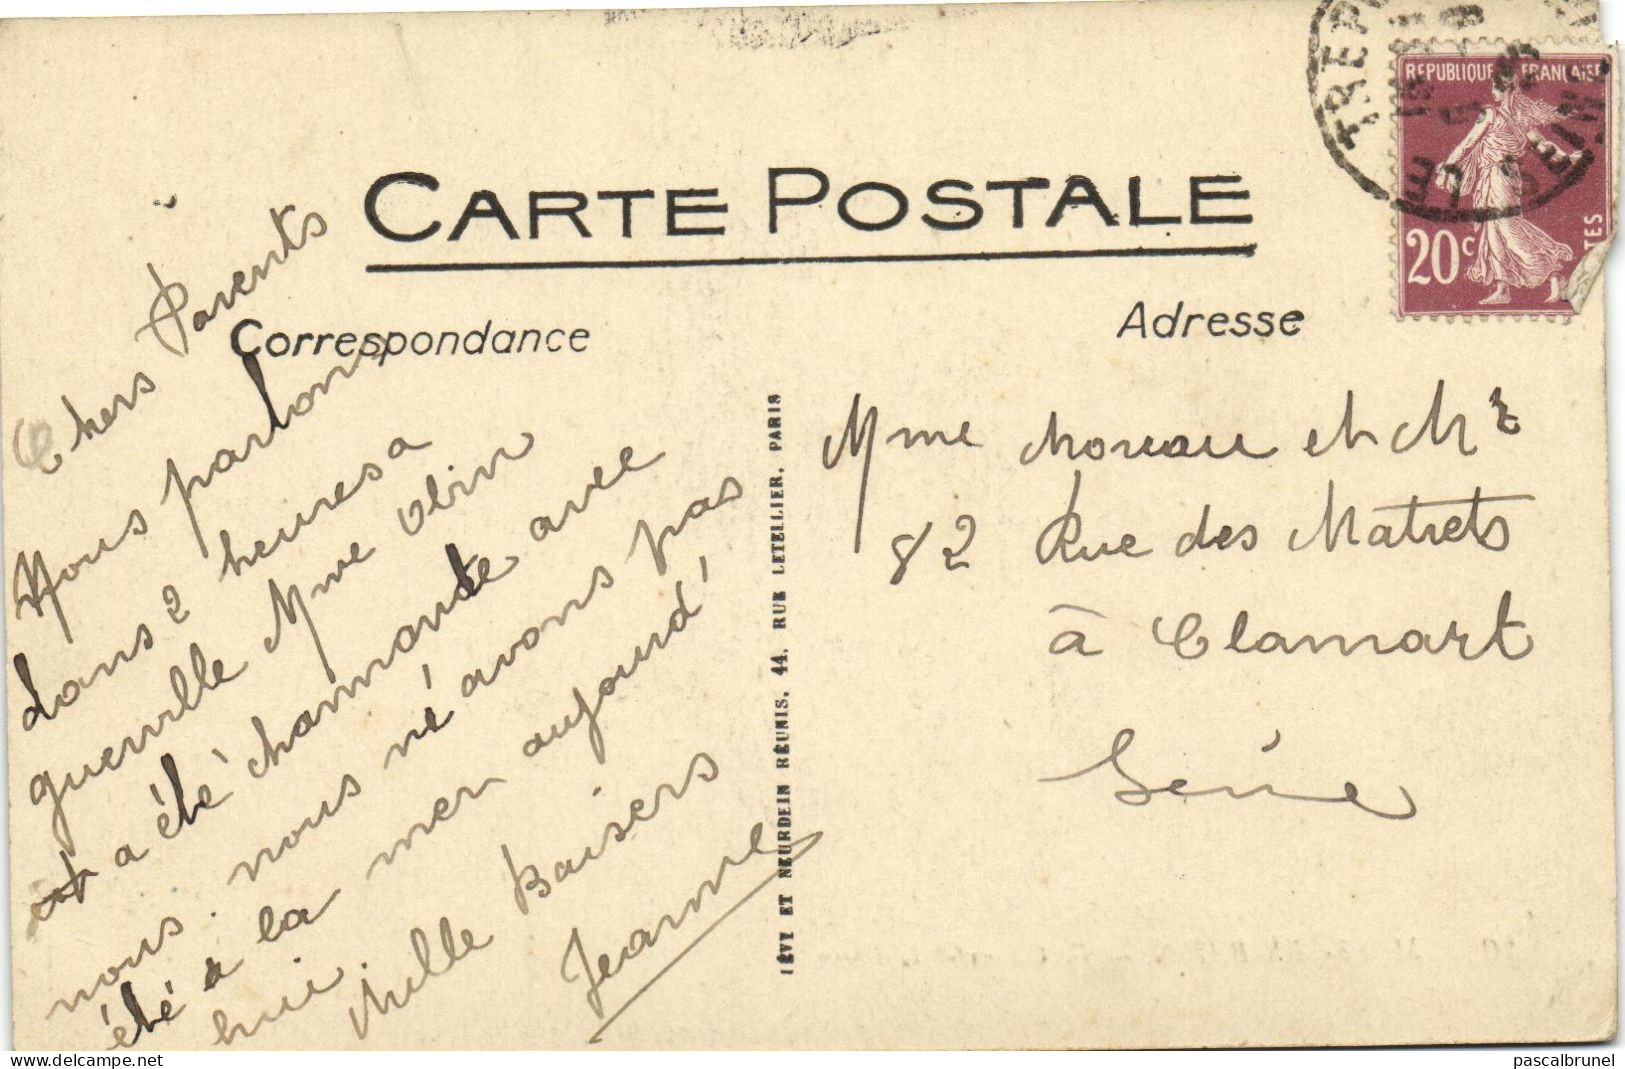 CARTE POSTALE
Correspondance
Adresse
LE TREP
SEINE
REPUBLIQUE FRANÇAISE
20c
TES
Chers Parents
Nous partons
dans 2 heures a
guerville Mme Olin
a été charmante avec
nous nous né avons pas
été a la mer aujourd'
hui. Mille Baisers
Jeanne
LÉVY ET NEURDEIN RÉUNIS, 44, RUE LETELLIER, PARIS
Mme Moreau et Mr
82 Rue des Matrets
à Clamart
Seine
delcampe.net
pascalbrunel